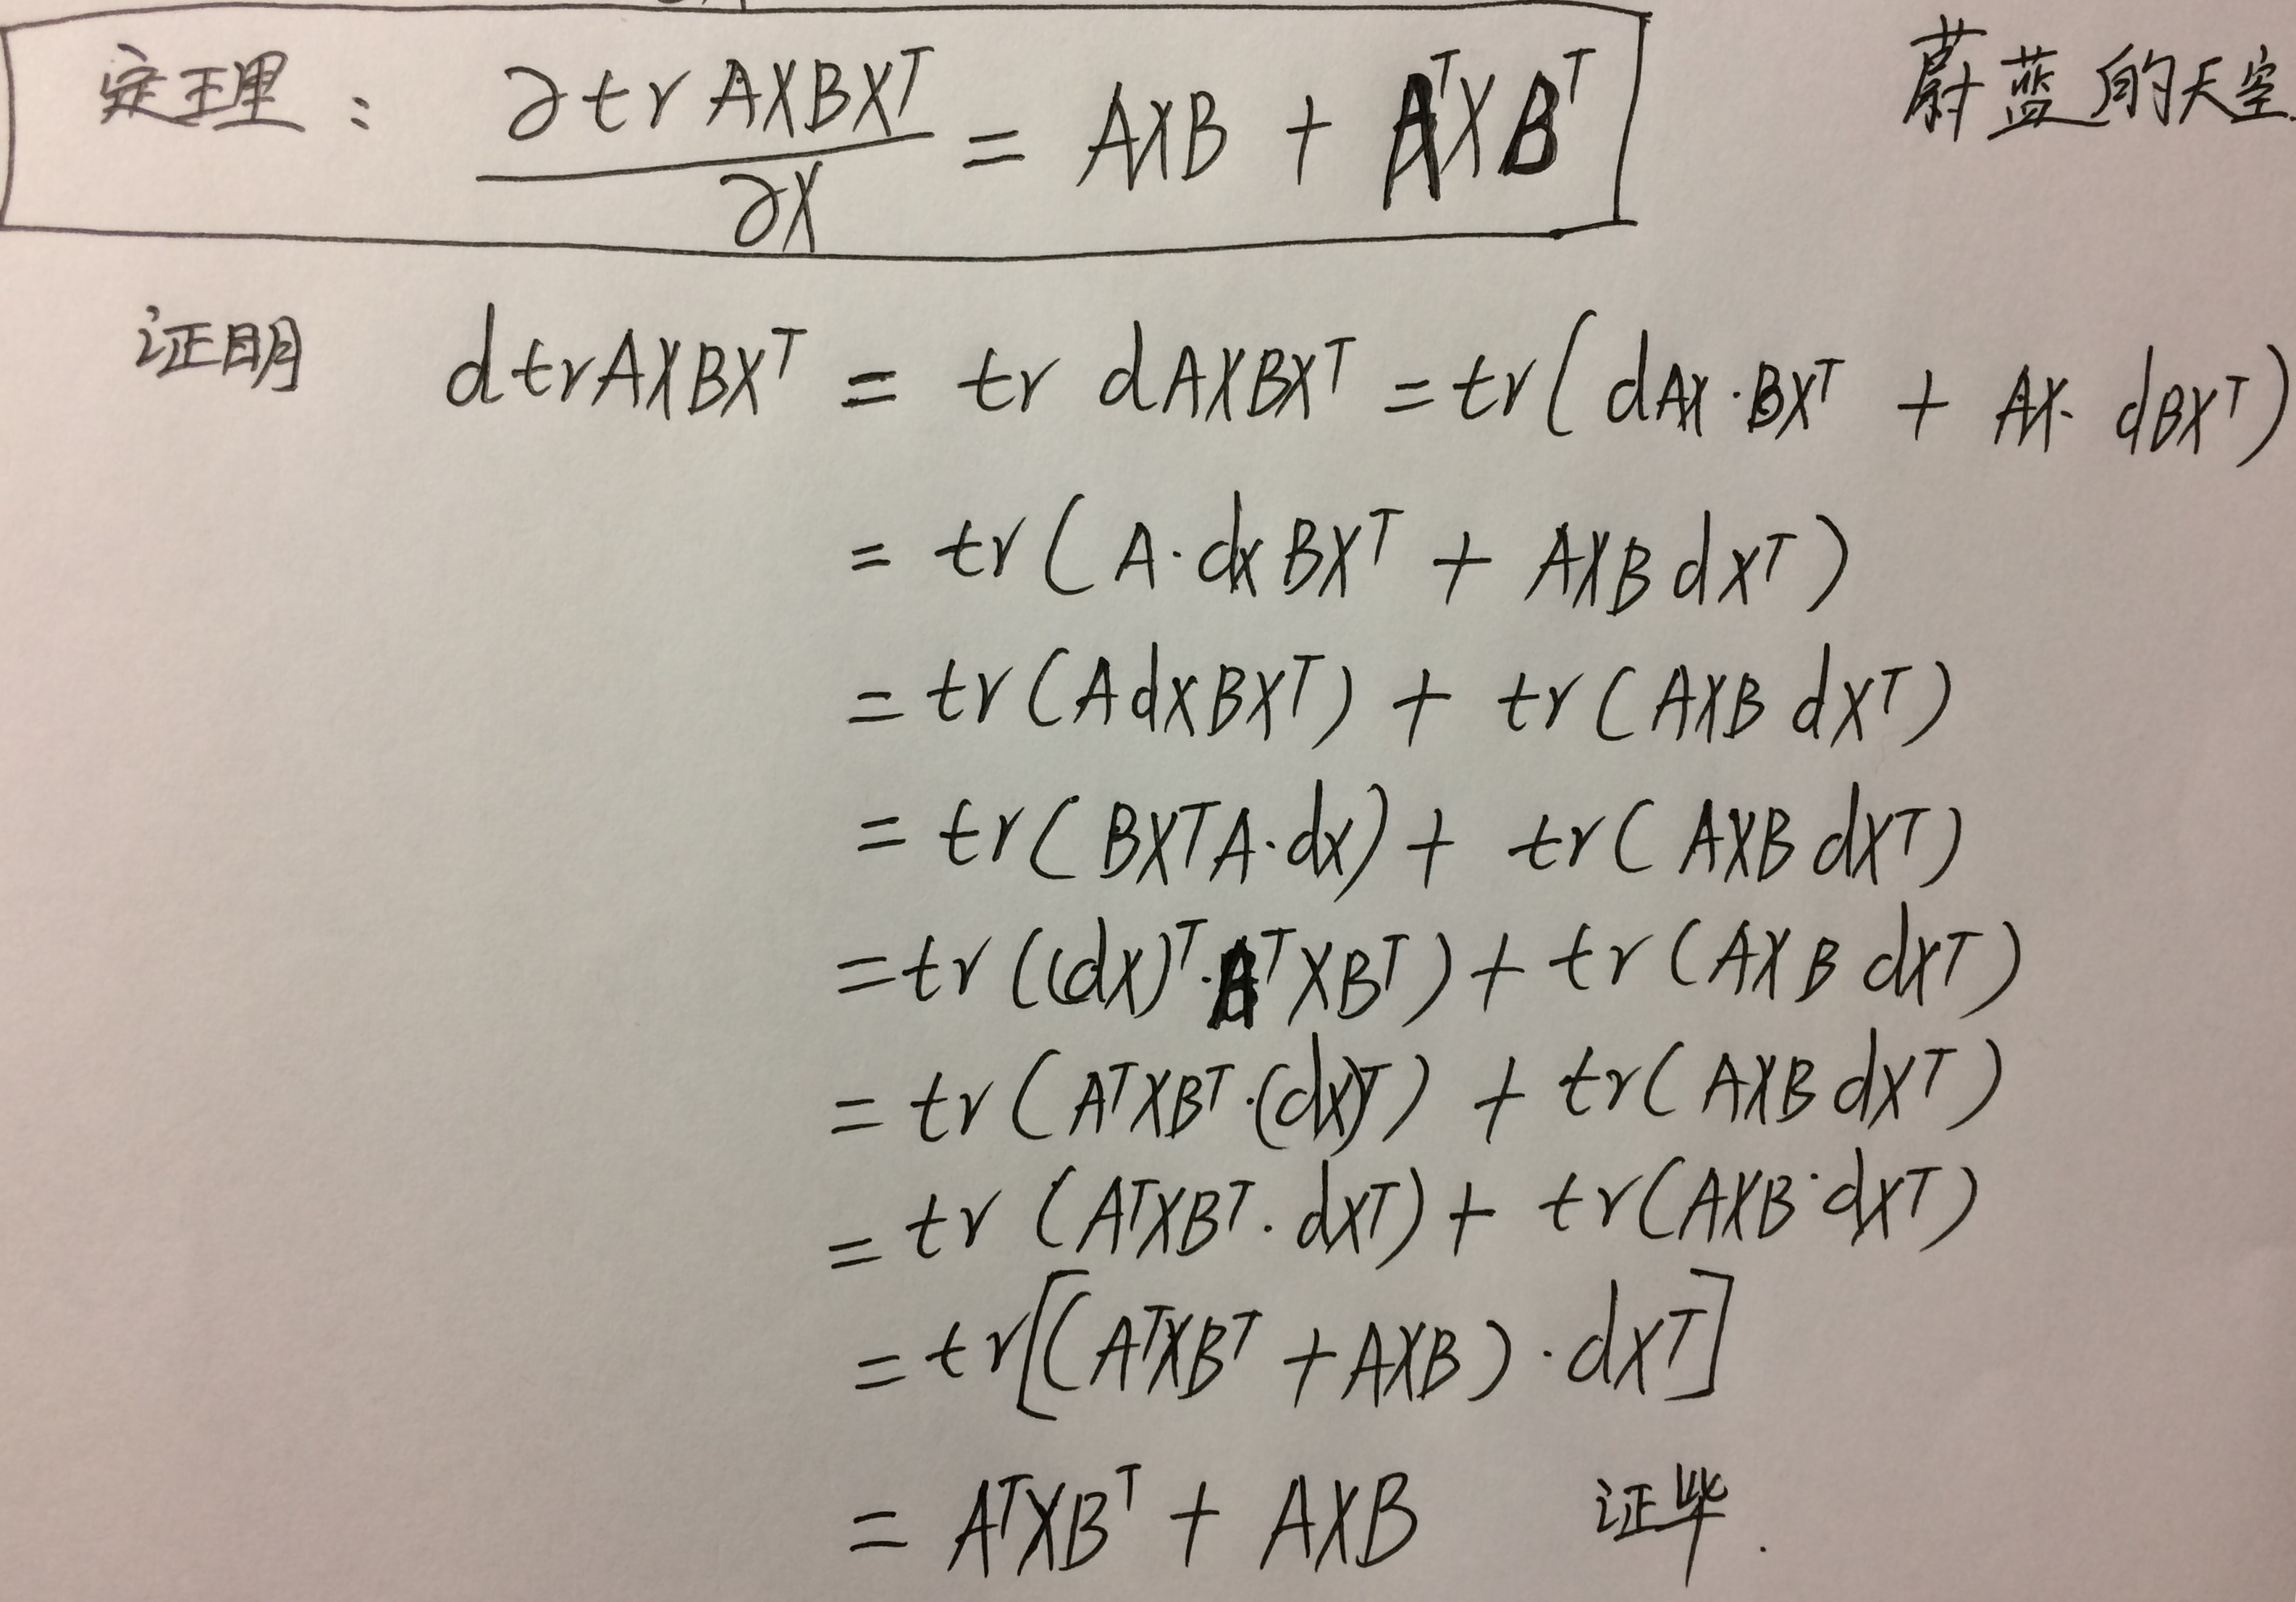 定理： ∂trAXBXᵀ / ∂X = AXB + AᵀXBᵀ
蔚蓝的天空.
证明 dtrAXBXᵀ = tr dAXBXᵀ = tr(dAX·BXᵀ + AX·dBXᵀ)
= tr(A·dXBXᵀ + AXBdXᵀ)
= tr(AdXBXᵀ) + tr(AXBdXᵀ)
= tr(BXᵀA·dX) + tr(AXBdXᵀ)
= tr((dX)ᵀ·AᵀXBᵀ) + tr(AXBdXᵀ)
= tr(AᵀXBᵀ·(dX)ᵀ) + tr(AXBdXᵀ)
= tr(AᵀXBᵀ·dXᵀ) + tr(AXB·dXᵀ)
= tr[(AᵀXBᵀ + AXB)·dXᵀ]
= AᵀXBᵀ + AXB 证毕.